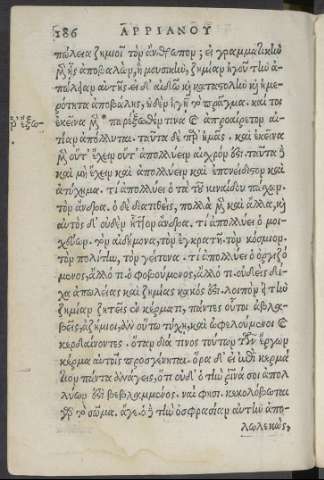 186 ΑΡΡΙΑΝΟΥ
πώλεια ζημιοῖ τὸν ἄνθρωπον; εἰ γραμματικὴν
μὲν ἧς ἀποβαλὼν, ἢ μουσικὴν, ζημίαν ἡγοῦ τὴν ἀ-
πώλειαν αὐτῆς. εἰ δ' αἰδῶ καὶ καταστολὴν καὶ ἡμε-
ρότητα ἀποβαλῆς, οὐδὲν ἡγῆ τὸ πρᾶγμα. καί τοι
ἐκεῖνα μὲν παρέξωθέν τινα καὶ ἀπροαίρετον αἰ-
τίαν ἀπόλλυνται. ταῦτα δὲ παρ' ἡμᾶς. καὶ ἐκεῖνα
μὲν οὔτ' ἔχειν οὔτ' ἀπολλύειν αἰχρόν ἐστι. ταῦτα ἢ
καὶ μὴ ἔχειν καὶ ἀπολλύειν καὶ ἐπονείδιστον καὶ
ἀτύχημα. τί ἀπολλύει ὁ τὰ τοῦ κιναίδου πάχων.
τὸν ἄνδρα. ὁ δὲ διατιθεὶς, πολλὰ μὲν καὶ ἄλλα, καὶ
αὐτὸς δ' οὐδὲν ἧττον ἄνδρα. τί ἀπολλύει ὁ μοι-
χεύων. τὸν αἰδήμονα, τὸν ἐγκρατῆ. τὸν κόσμιον.
τὸν πολίτην, τὸν γείτονα. τί ἀπολλύει ὁ ὀργιζό
μενος, ἄλλό τι. ὁ φοβούμενος, ἄλλό τι. οὐδεὶς δί-
χα ἀπωλείας καὶ ζημίας κακός ἐστι. λοιπὸν ἢ τὴν
ζημίαν ζητεῖς ἐν κέρματι, πάντες οὗτοι ἀβλα-
βεῖς, ἀζήμιοι, ἂν οὕτω τύχῃ, καὶ ὠφελούμενοι καὶ
κερδαίνοντες. ὅταν διά τινος τούτων τῶν ἔργων
κέρμα αὐτοῖς προσγένηται. ὅρα δ' εἰ ἐπὶ κερμά
τιον πάντα ἀνάγεις, ὅτι οὐδ' ὁ τὴν ῥῖνά σοι ἀπολ
λύων ἐστὶ βεβλαμμένος. ναί φησι. κεκολόβωται
γὰρ τὸ σῶμα. ἄγε. ὁ ἢ τὴν ὀσφρασίαν αὐτὴν ἀπο-
λωλεκὼς,